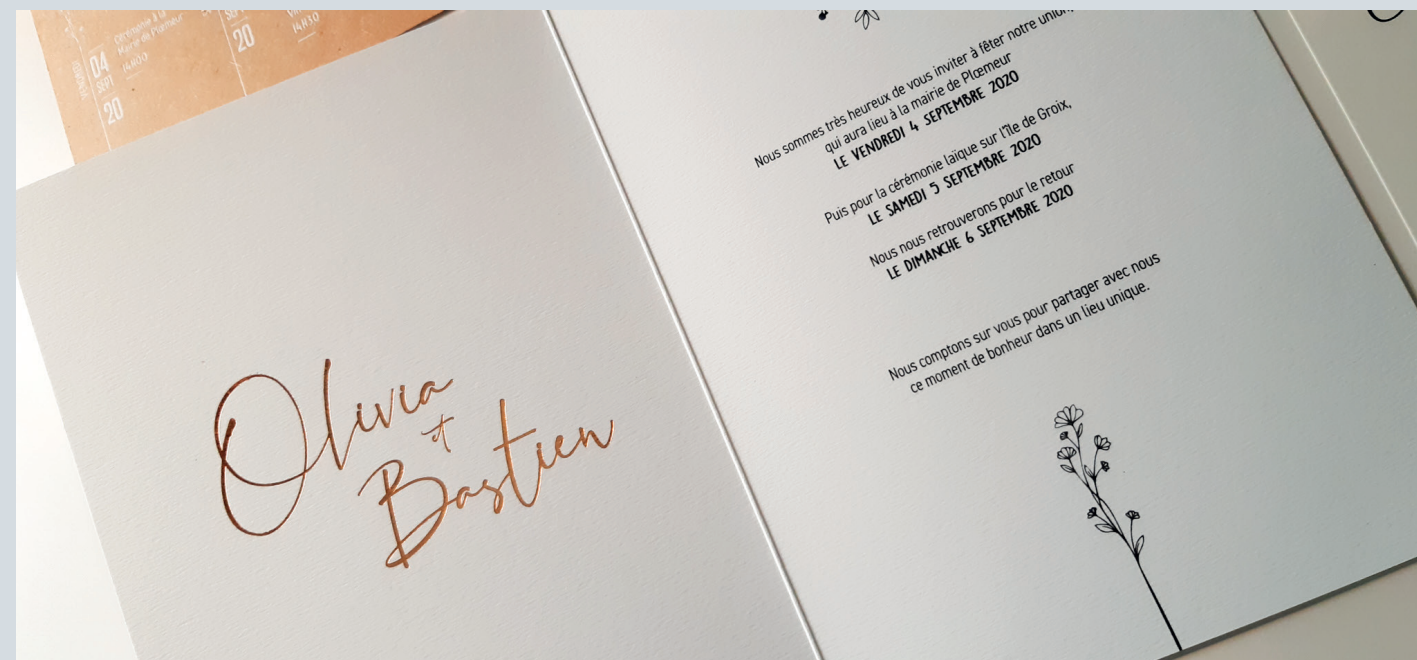 04
SEPT
20
Cérémonie à la
Mairie de Plœmeur
14H00
20
14H30
Olivia
et
Bastien
Nous sommes très heureux de vous inviter à fêter notre union,
qui aura lieu à la mairie de Plœmeur
LE VENDREDI 4 SEPTEMBRE 2020
Puis pour la cérémonie laïque sur l'île de Groix,
LE SAMEDI 5 SEPTEMBRE 2020
Nous nous retrouverons pour le retour
LE DIMANCHE 6 SEPTEMBRE 2020
Nous comptons sur vous pour partager avec nous
ce moment de bonheur dans un lieu unique.